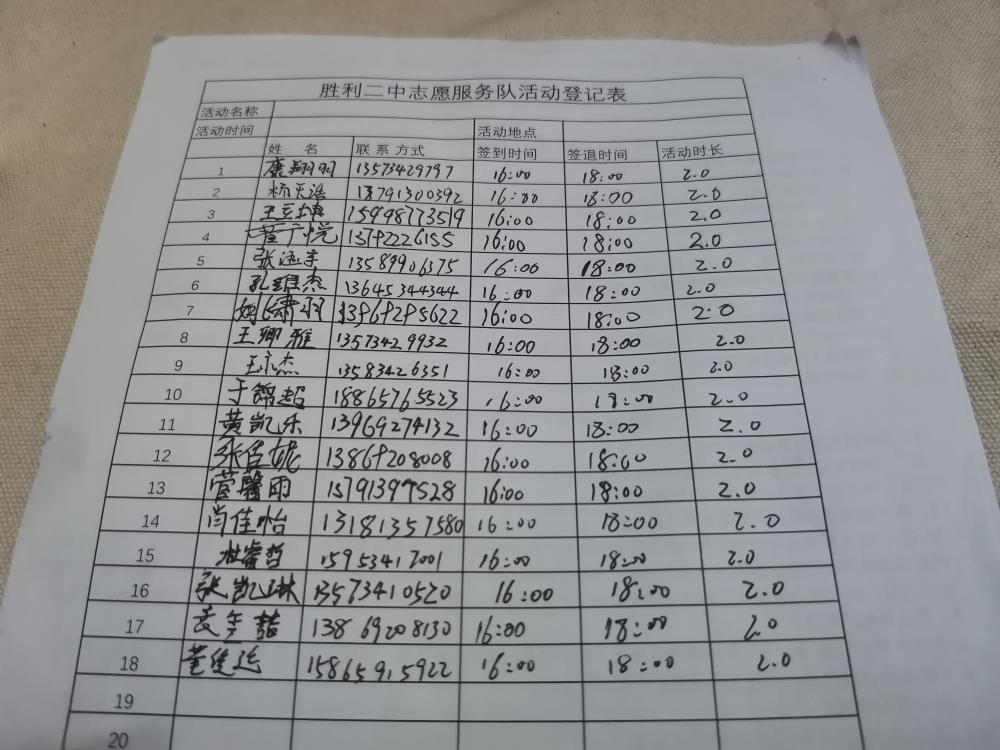 胜利二中志愿服务队活动登记表
活动名称
活动时间 活动地点
姓 名 联系方式 签到时间 签退时间 活动时长
1 康翔羽 13573429797 16:00 18:00 2.0
2 杨天浩 18791300392 16:00 18:00 2.0
3 15998773519 16:00 18:00 2.0
4 13792226155 16:00 18:00 2.0
5 13589906375 16:00 18:00 2.0
6 孔维杰 13645344344 16:00 18:00 2.0
7 16:00 18:00 2.0
8 王卿雅 13573429932 16:00 18:00 2.0
9 王永杰 13583426351 16:00 18:00 2.0
10 于锦超 18865765523 16:00 18:00 2.0
11 黄凯乐 13969274132 16:00 18:00 2.0
12 张佳妮 13869208008 16:00 18:00 2.0
13 16:00 18:00 2.0
14 肖佳怡 13181357580 16:00 18:00 2.0
15 杜睿哲 15953412001 16:00 18:00 2.0
16 张凯琳 13573410520 16:00 18:00 2.0
17 13869208130 16:00 18:00 2.0
18 15865915922 16:00 18:00 2.0
19
20